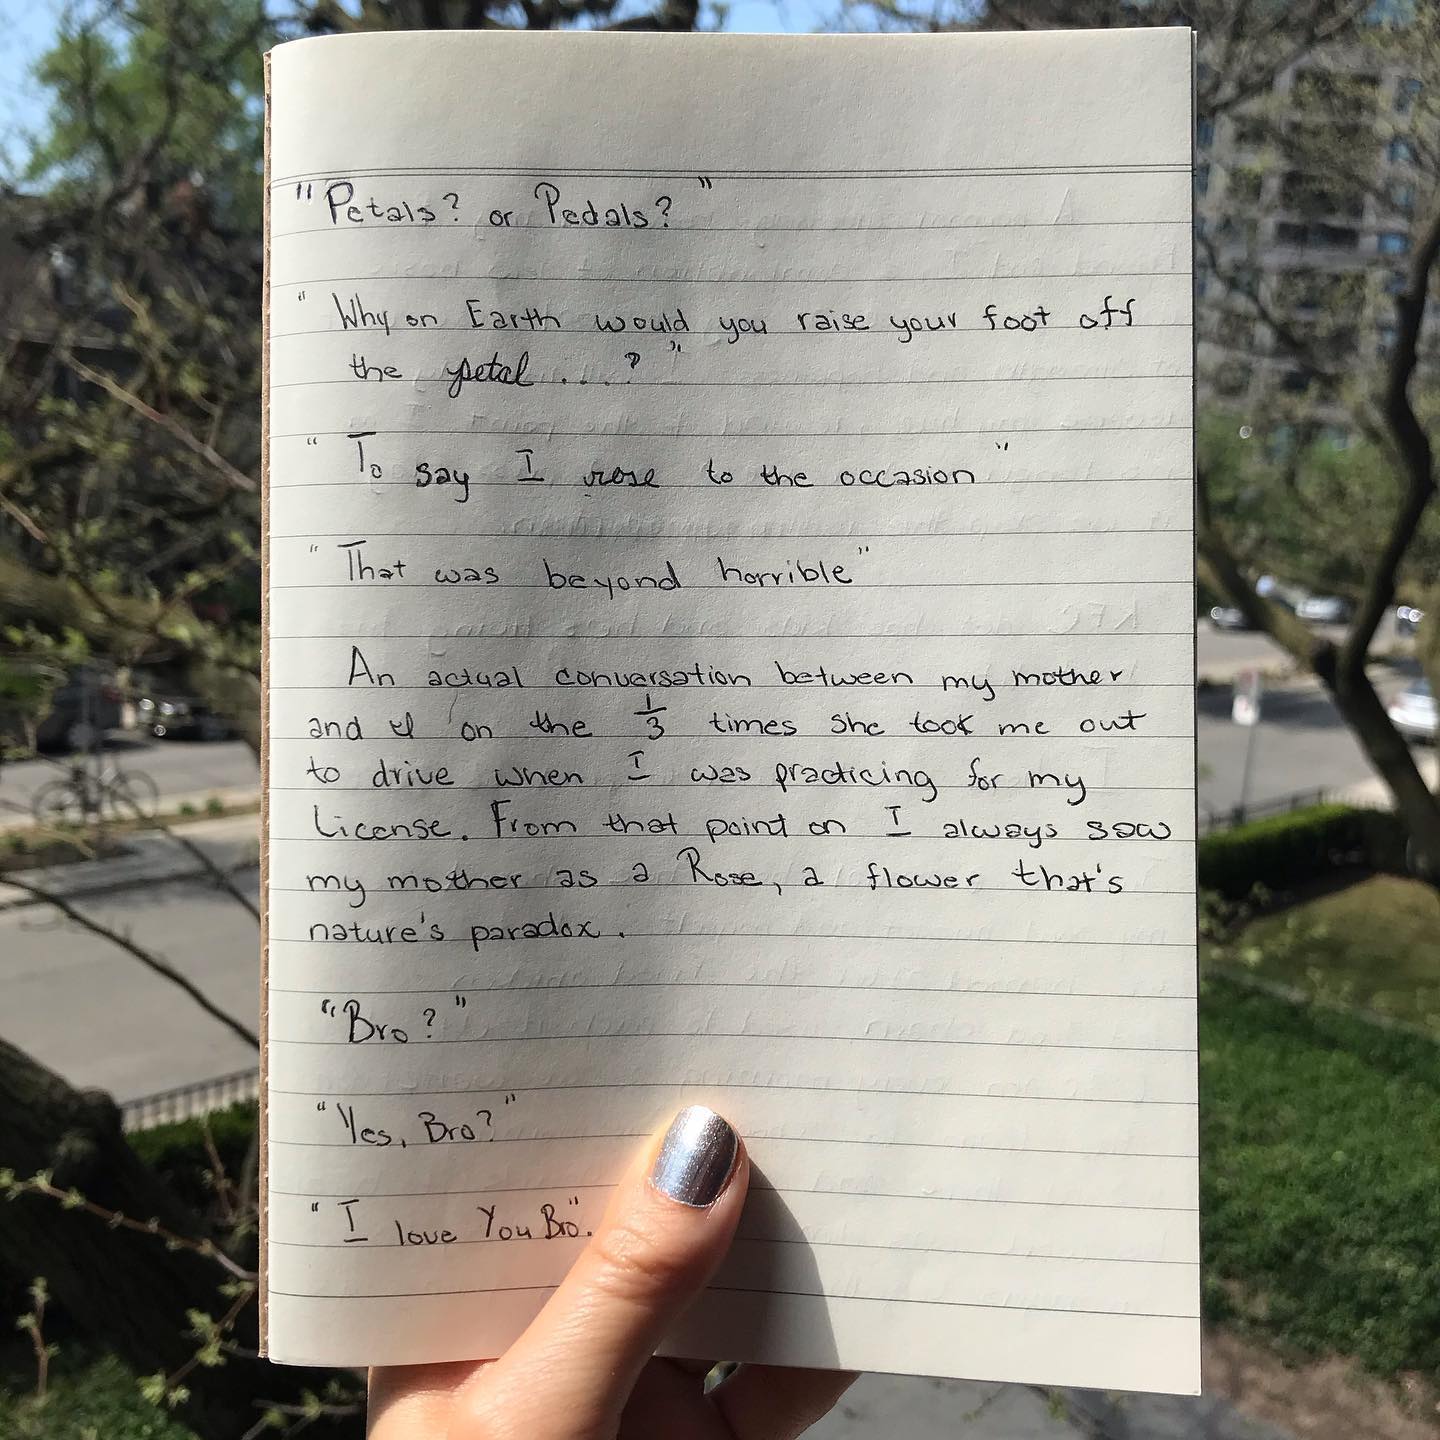 "Petals? or Pedals?"
"Why on Earth would you raise your foot off
the petal....?"
"To say I rose to the occasion"
"That was beyond horrible"
An actual conversation between my mother
and I on the 1/3 times she took me out
to drive when I was practicing for my
License. From that point on I always saw
my mother as a Rose, a flower that's
nature's paradox.
"Bro?"
"Yes, Bro?"
"I love You Bro".